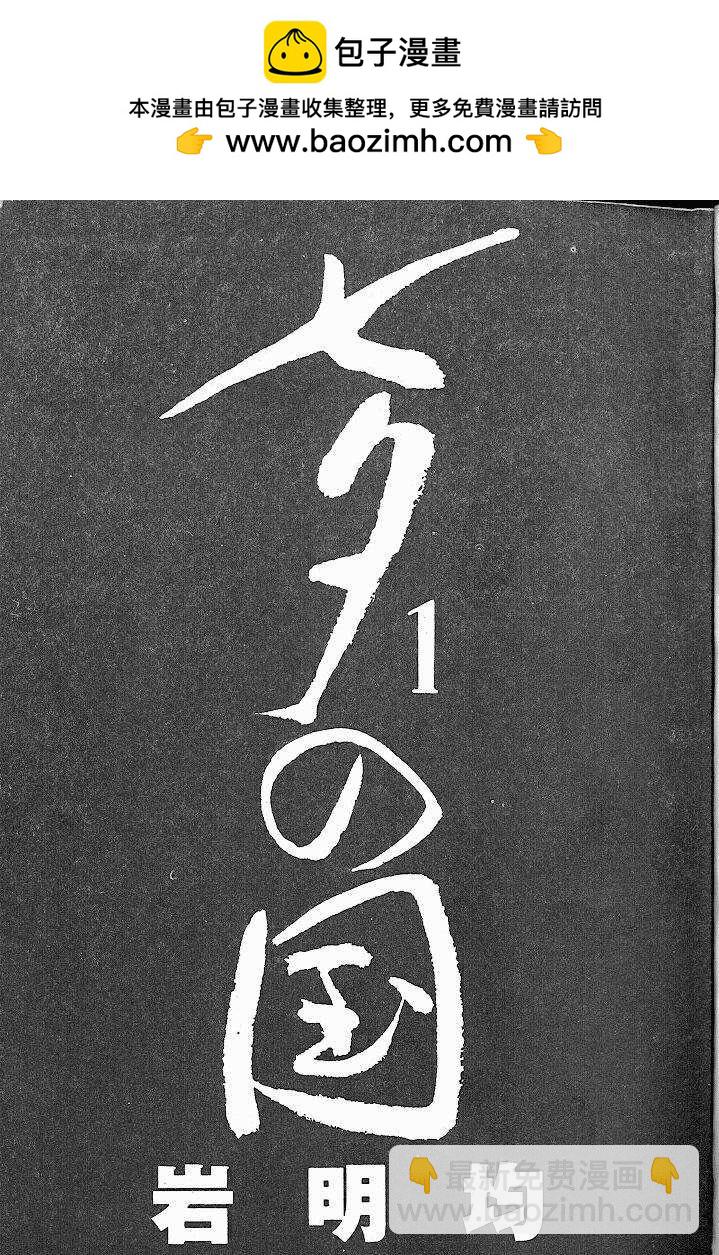 包子漫畫
本漫畫由包子漫畫收集整理，更多免費漫畫請訪問
👉 www.baozimh.com 👈
七夕の国
1
岩明均
👇最新免费漫画👇
baozimh.com